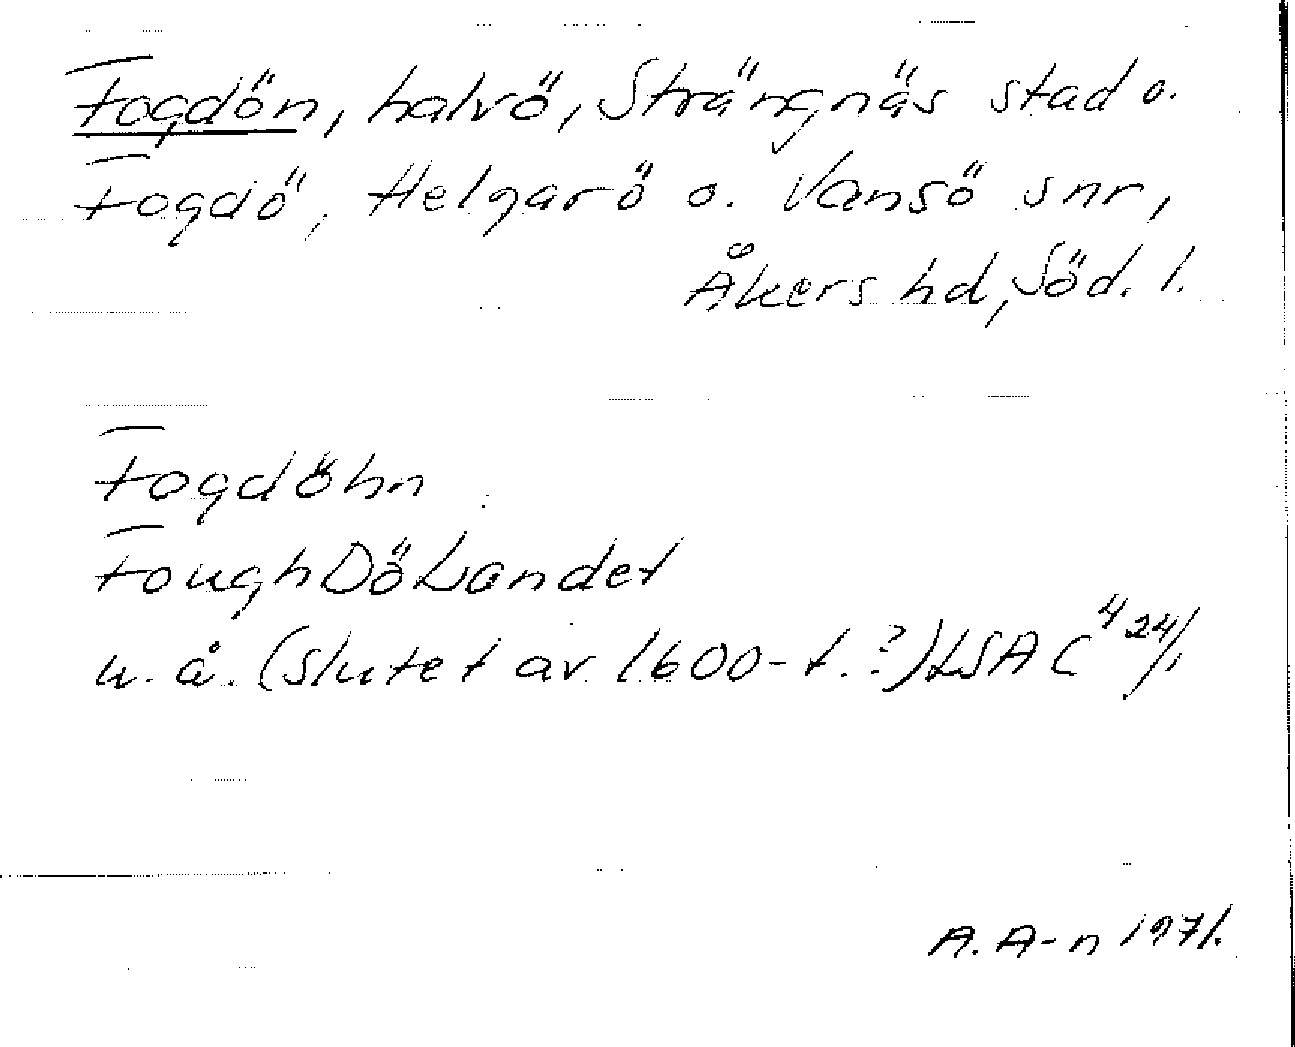 Fogdön, halvö, Strängnäs stad o.
Fogdö, Helgarö o. Vansö snr,
Åkers hd, Söd. l.
Fogdöhn
FoughDöLandet
u. å. (slutet av 1600-t.?) LSA C⁴ 24/1
A. A-n 1971.